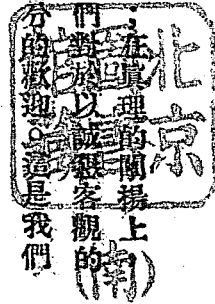 ；在眞理的闡揚上
們對於以誠懇客觀的
分的歡迎。這是我們
北京
(南)